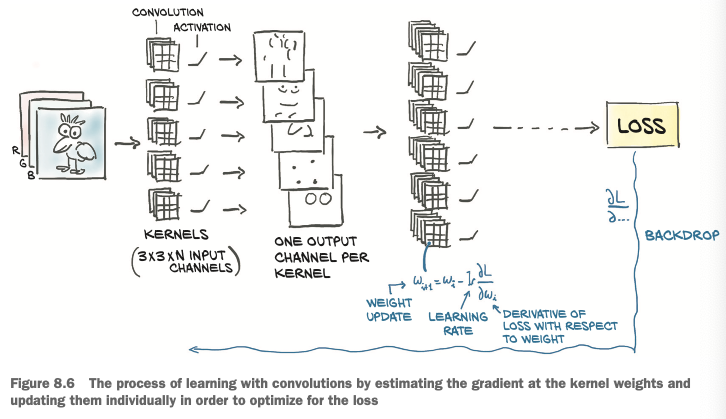 CONVOLUTION
ACTIVATION
R
G
B
KERNELS
(3X3XN INPUT
CHANNELS)
ONE OUTPUT
CHANNEL PER
KERNEL
LOSS
∂L
∂...
BACKDROP
Wi+1 = Wi - lr ∂L/∂Wi
WEIGHT
UPDATE
LEARNING
RATE
DERIVATIVE OF
LOSS WITH RESPECT
TO WEIGHT
Figure 8.6 The process of learning with convolutions by estimating the gradient at the kernel weights and
updating them individually in order to optimize for the loss